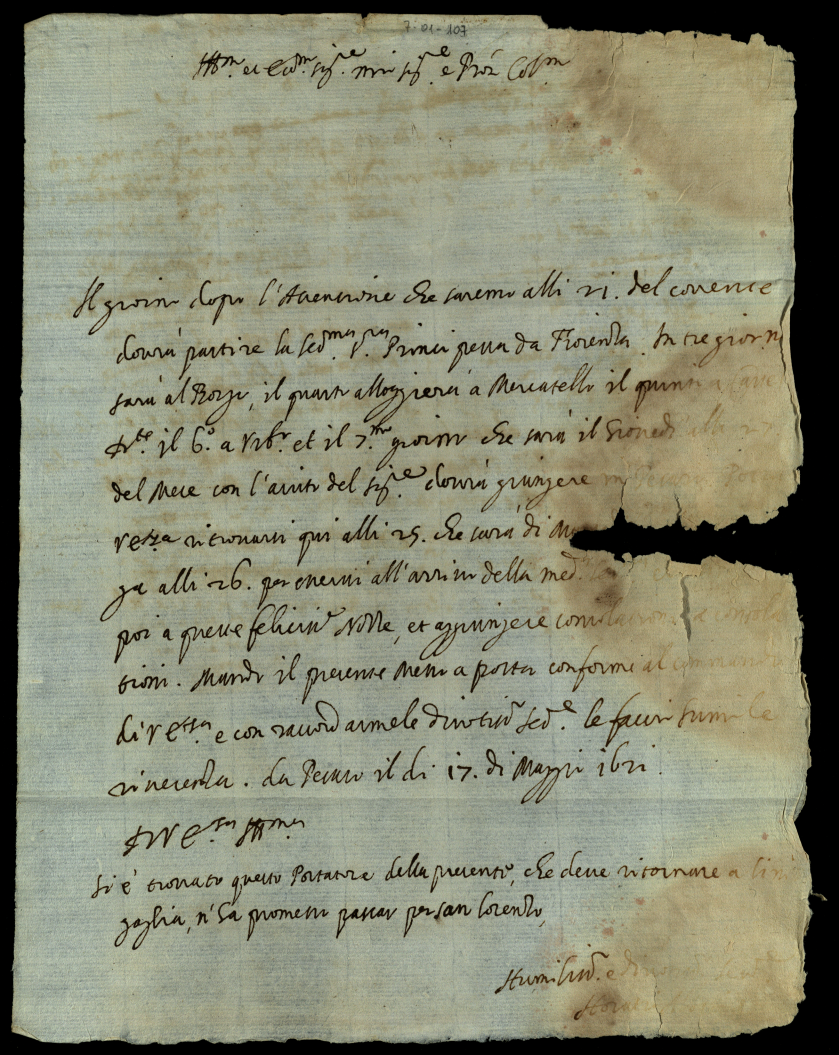 7-01-107
Ill.mo et Ecc.mo Sig.re mio Sig.re e Pron Col.mo
Il giorno dopo l'Ascensione che saremo alli 21. del corrente
dovrà partire la Ser.ma S.ra Principessa da Fiorenza. In tre giorni
sarà al Borgo, il quarto alloggierà a Mercatello il quinto a
il 6.o a Urb.o et il 7.mo giorno che sarà il Giovedi alli 2
del Mese con l'aiuto del Sig.re dovrà giungere
V Ecc.za ritrovarsi qui alli 25. che sarà di
ga alli 26. per esservi all'arrivo della med.
poi a queste felicis.e Nozze, et aggiungere consolationi a consola
tioni. Mando il presente Messo a posta conforme al commando
di V Ecc.za e con raccordarmele divotis.o Ser.re le faccio humile
riverenza. Da Pesaro il di 17. di Maggio 1621.
D V Ecc.za Ill.ma
Si è trovato questo Portatore della presente, che deve ritornare a Sini
gaglia, n'ha promesso passar per San Lorenzo,
Humiliss.o e